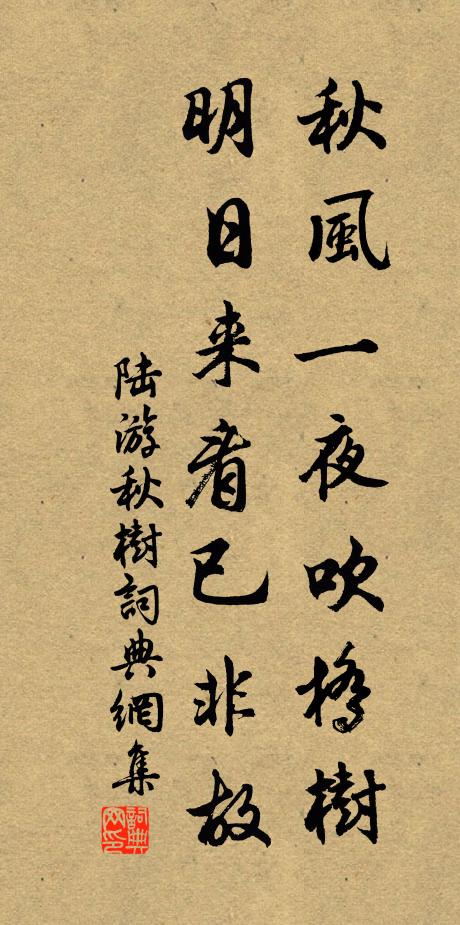 秋風一夜吹橋樹
明日来看已非故
陆游秋樹詞典網集
詞典网印